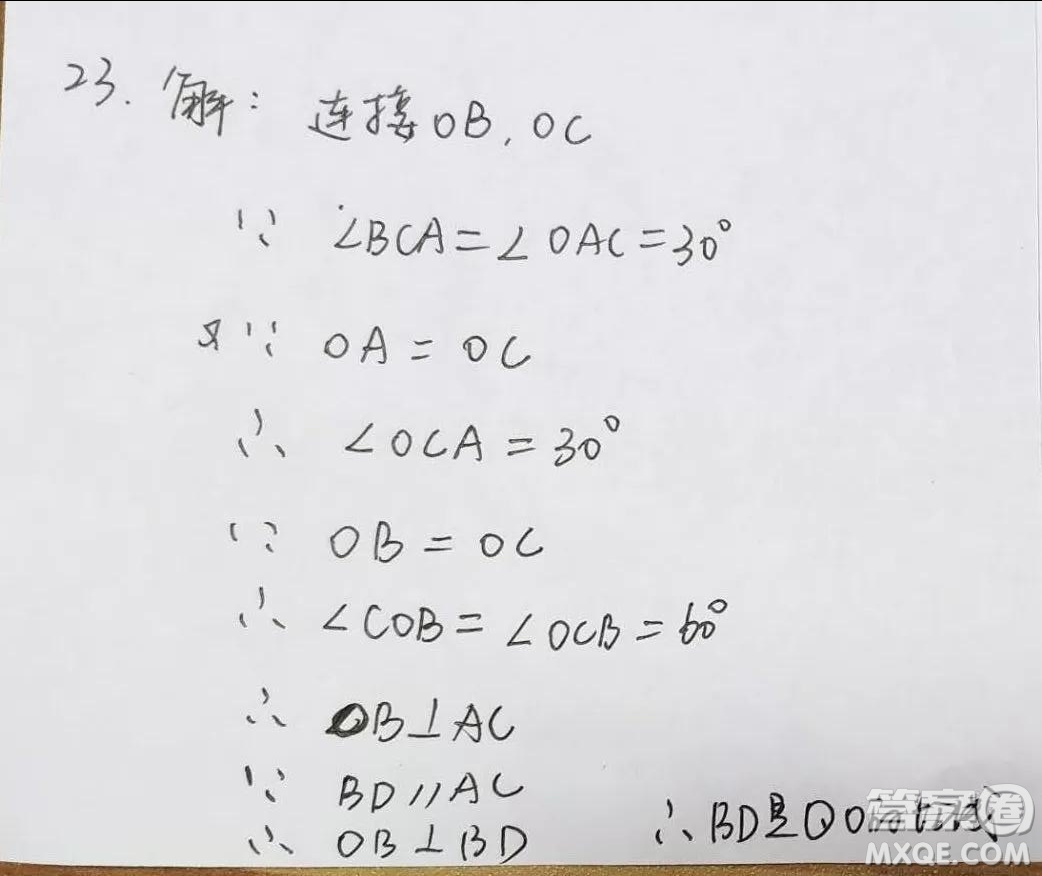 23. 解： 连接OB, OC
∵ ∠BCA=∠OAC=30°
又∵ OA=OC
∴ ∠OCA=30°
∵ OB=OC
∴ ∠COB=∠OCB=60°
∴ OB⊥AC
∵ BD//AC
∴ OB⊥BD ∴BD是⊙O的切线
答案圈
MXQE.COM